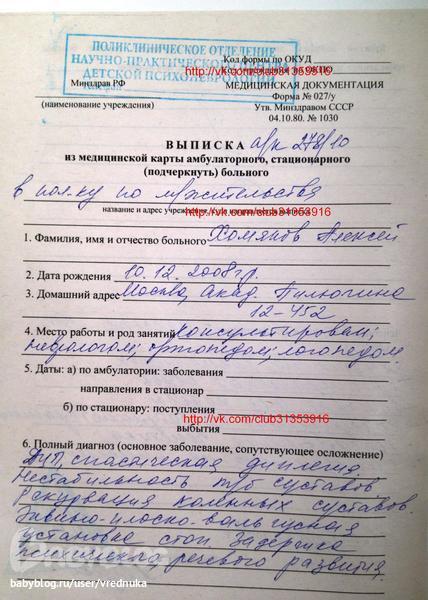 ПОЛИКЛИНИЧЕСКОЕ ОТДЕЛЕНИЕ
НАУЧНО-ПРАКТИЧЕСКОГО ЦЕНТРА
ДЕТСКОЙ ПСИХОНЕВРОЛОГИИ
Код формы по ОКУД
http://vk.com/club31353916
Минздрав РФ
МЕДИЦИНСКАЯ ДОКУМЕНТАЦИЯ
(наименование учреждения)
Форма № 027/у
Утв. Минздравом СССР
04.10.80. № 1030
ВЫПИСКА а/к 278/10
из медицинской карты амбулаторного, стационарного
(подчеркнуть) больного
в пол-ку по м/жительства
название и адрес
http://vk.com/club31353916
1. Фамилия, имя и отчество больного Хомяков Алексей
2. Дата рождения 10.12.2008 г.р.
3. Домашний адрес Москва, Акад. Пилюгина
12-452
4. Место работы и род занятий Консультирован;
неврологом; ортопедом; логопедом
5. Даты: а) по амбулатории: заболевания
направления в стационар
б) по стационару: поступления
http://vk.com/club31353916
выбытия
6. Полный диагноз (основное заболевание, сопутствующее осложнение)
ДЦП, спастическая диплегия.
Нестабильность т/б суставов.
Рекурвация коленных суставов.
Эквино-плоско-вальгусная
установка стоп. Задержка
психического речевого развития.
babyblog.ru/user/vrednuka